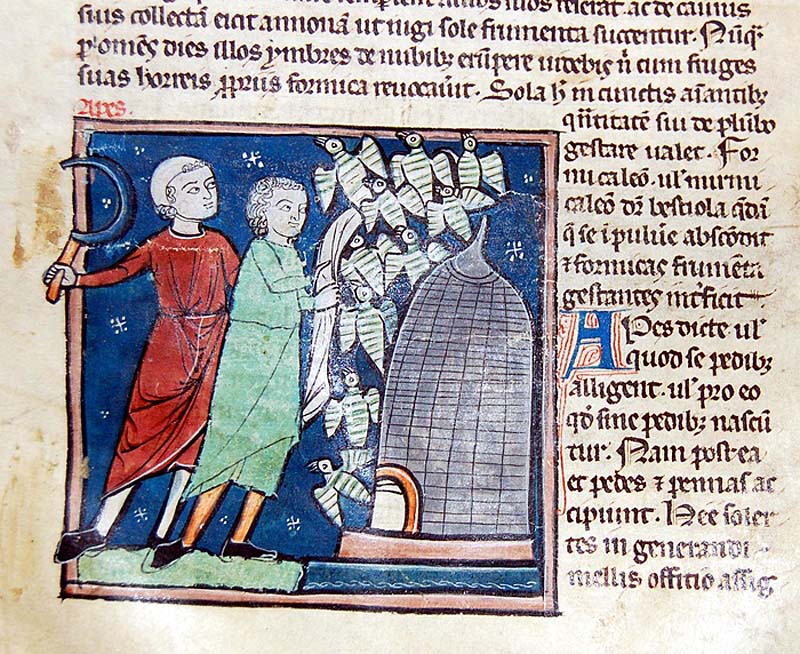 illos referat. ac de cauius
suis collectā eicit annonam ut iugi sole frumenta siccentur. Nūqꝫ
ꝑ omēs dies illos ymbres de nubibꝫ erūpere uidebiꝭ n̄ cum fruges
suas horreis formica reuocauit. Sola in cunctis aīantibꝫ
Apes.
q̄ntitatē sui de plūbo
gestare ualet. For
micaleō. ul' mirmi
caleō dr̄ bestiola q̄dā
q̄ se ī puluē abscōdit
⁊ formicas frumēta
gestantes int̄ficit
Apes dicte ul'
quod se pedibꝫ
alligent. ul' pro eo
qd̄ sine pedibꝫ nascū
tur. Nam post ea
et pedes ⁊ pennas ac
cipiunt. Hee soler
tes in generandi
mellis offitio assig